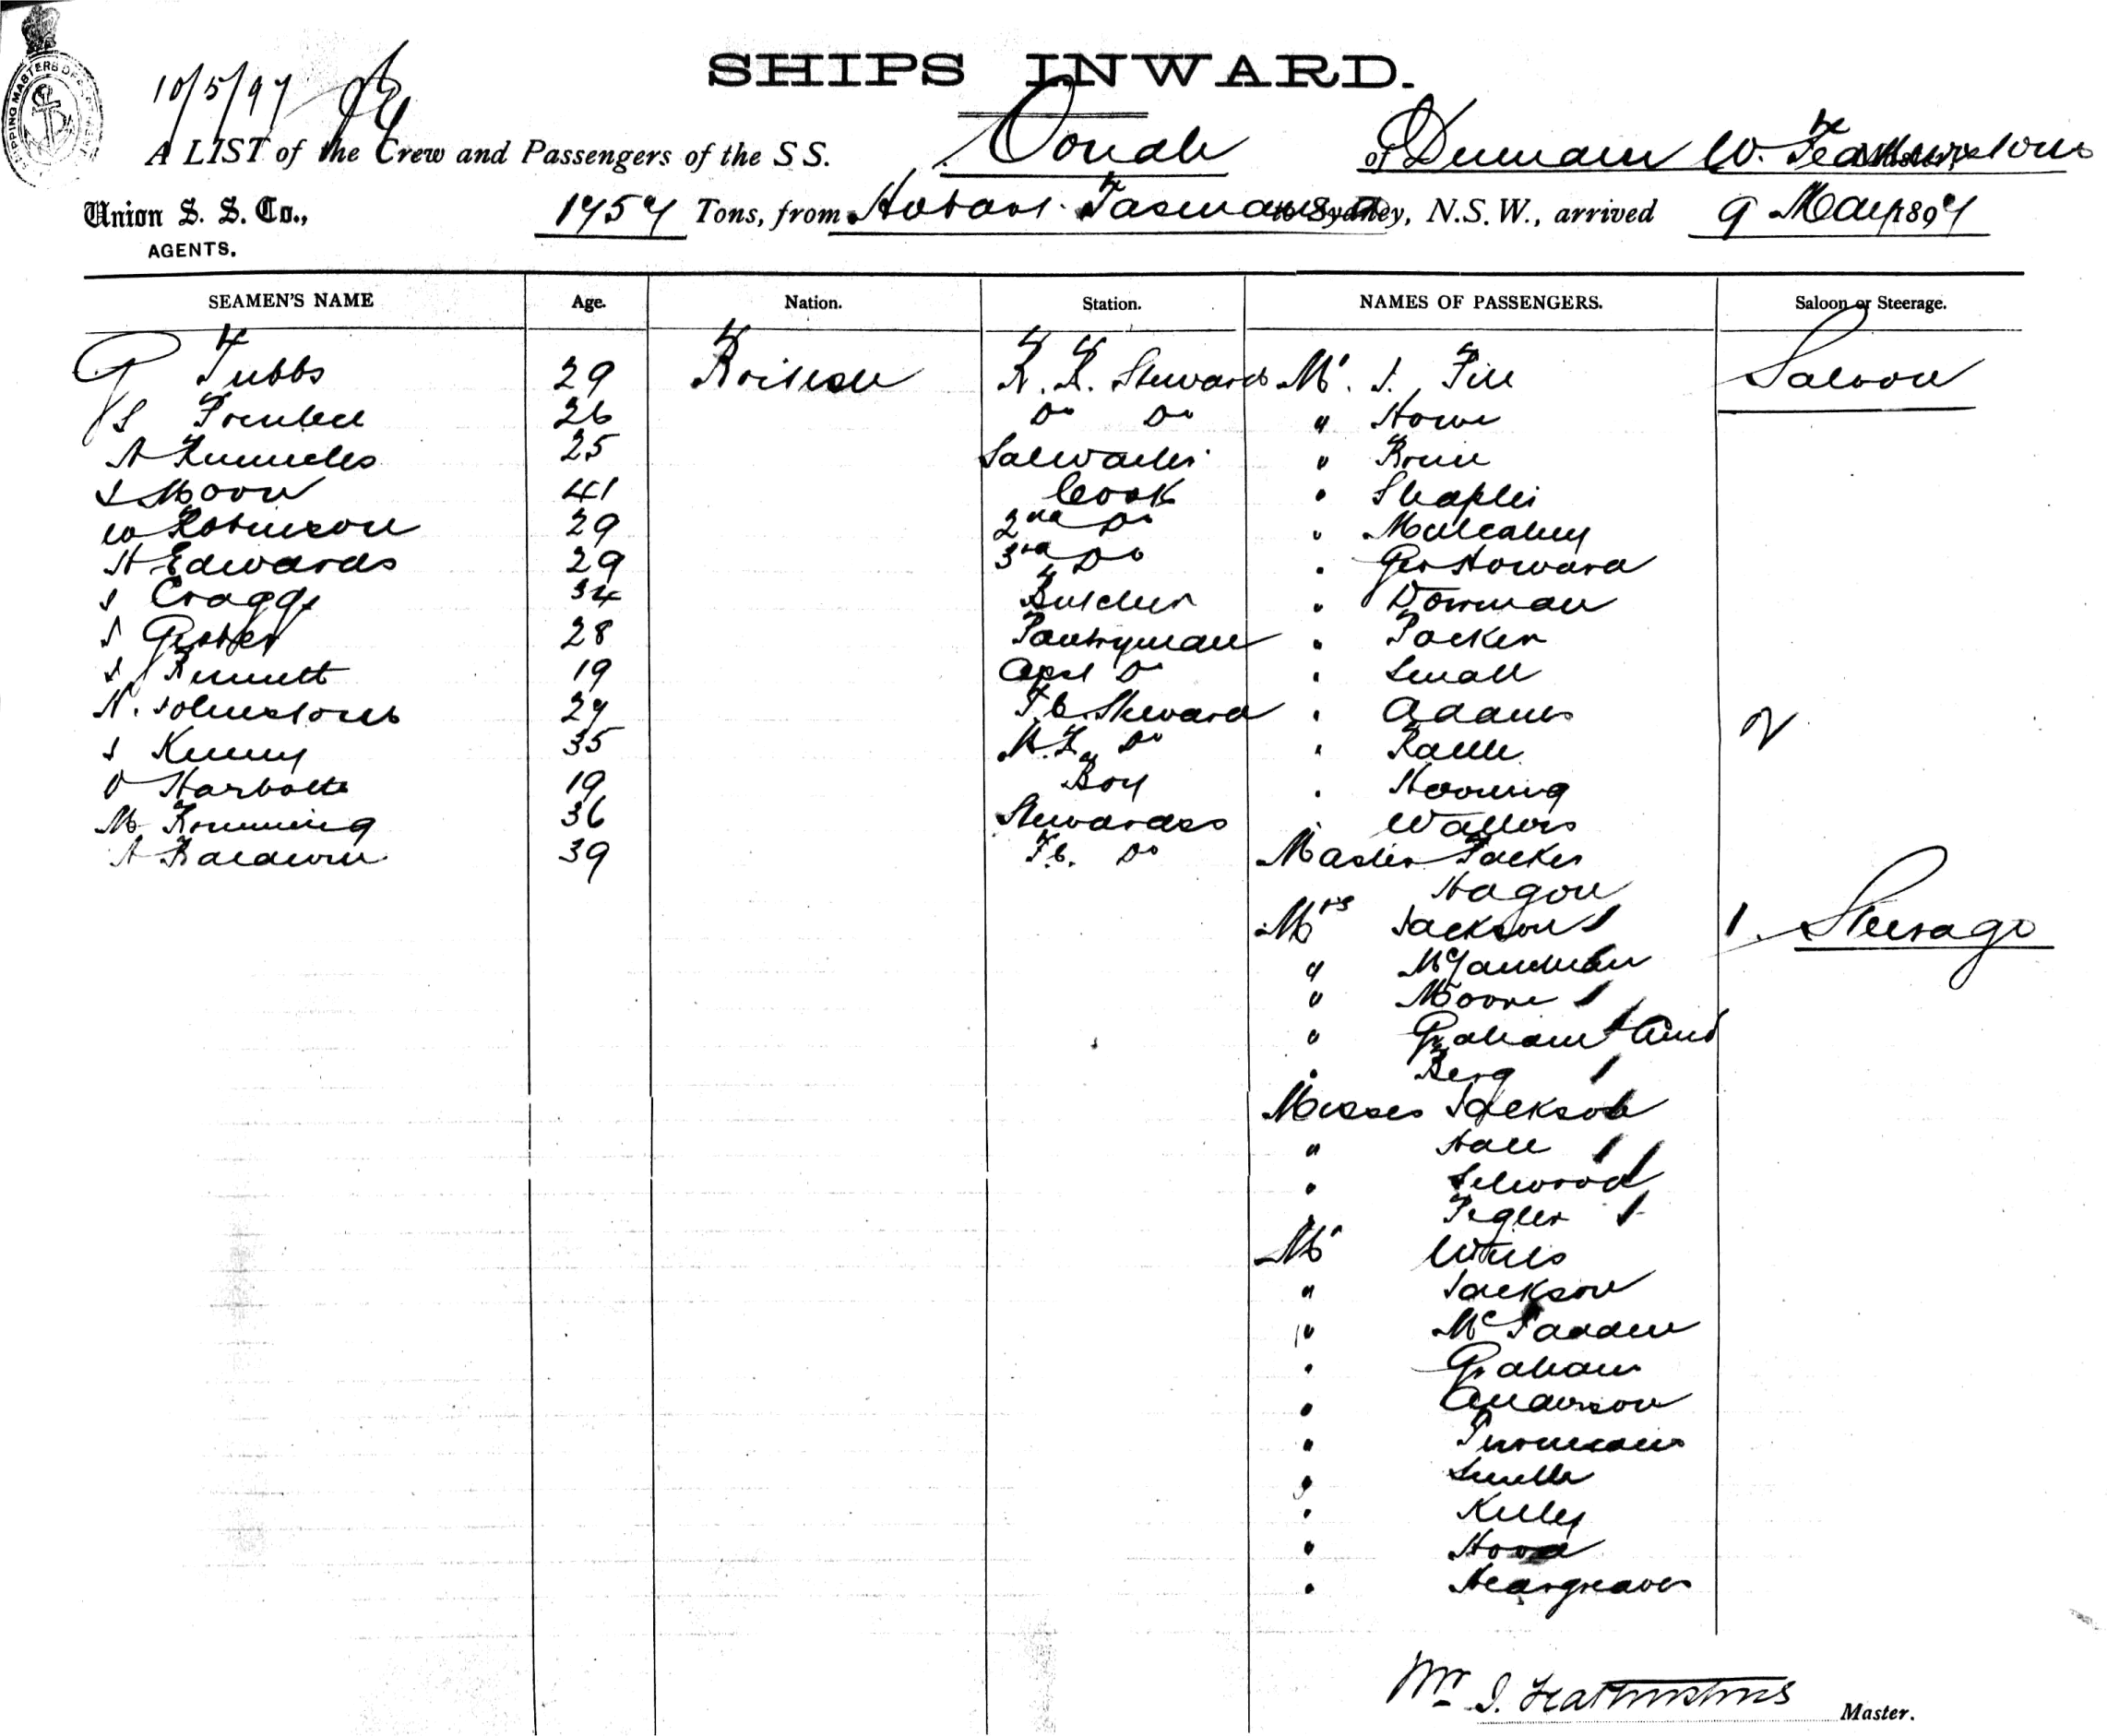 SHIPS INWARD.
10/5/97
A LIST of the Crew and Passengers of the S S. Oonah of Dunedin W. Featherstone
Union S. S. Co., 1757 Tons, from Hobart Tasmania to Sydney, N.S.W., arrived 9 May 1897
AGENTS.
SEAMEN'S NAME Age. Nation. Station. NAMES OF PASSENGERS. Saloon or Steerage.
G Tubbs 29 British R. R. Steward Mr. J. Saloon
S 26 Do Do " Howe
A 25 "
J Moon 41 Cook " Sharples
W Robinson 29 2nd Do " Mulcahy
H Edwards 29 3rd Do " Geo Howard
J Craggs 34 Butcher " Dorman
J 28 Pantryman " Packer
J Bennett 19 Asst Do " Small
N. Johnstone 27 F.C. Steward " Adams
J Kenny 35 Do "
O Harbottle 19 Boy "
M 36 Stewardess " Walters
A Baldwin 39 F.C. Do Master Packer
Hagon
Mrs Jackson 1 Steerage
"
" Moore 1
" Graham 1 and
" Berg 1
Misses Jackson
" Hall 1
" Selwood
" Pegler 1
Mr Wills
" Jackson
" McFadden
" Graham
" Anderson
"
" Smith
" Kelley
" Hood
" Heargreaves
Wm J. Featherstone Master.